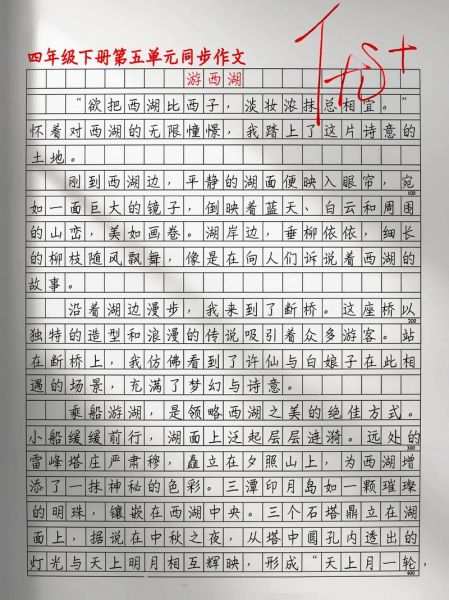 四年级下册第五单元同步作文
游西湖
“欲把西湖比西子，淡妆浓抹总相宜。”
怀着对西湖的无限憧憬，我踏上了这片诗意的
土地。
刚到西湖边，平静的湖面便映入眼帘，宛
100
如一面巨大的镜子，倒映着蓝天、白云和周围
的山峦，美如画卷。湖岸边，垂柳依依，细长
的柳枝随风飘舞，像是在向人们诉说着西湖的
故事。
沿着湖边漫步，我来到了断桥。这座桥以
200
独特的造型和浪漫的传说吸引着众多游客。站
在断桥上，我仿佛看到了许仙与白娘子在此相
遇的场景，充满了梦幻与诗意。
乘船游湖，是领略西湖之美的绝佳方式。
小船缓缓前行，湖面上泛起层层涟漪。远处的
300
雷峰塔庄严肃穆，矗立在夕照山上，为西湖增
添了一抹神秘的色彩。三潭印月岛如一颗璀璨
的明珠，镶嵌在西湖中央。三个石塔鼎立在湖
面上，据说在中秋之夜，从塔中圆孔内透出的
灯光与天上明月相互辉映，形成“天上月一轮，
400